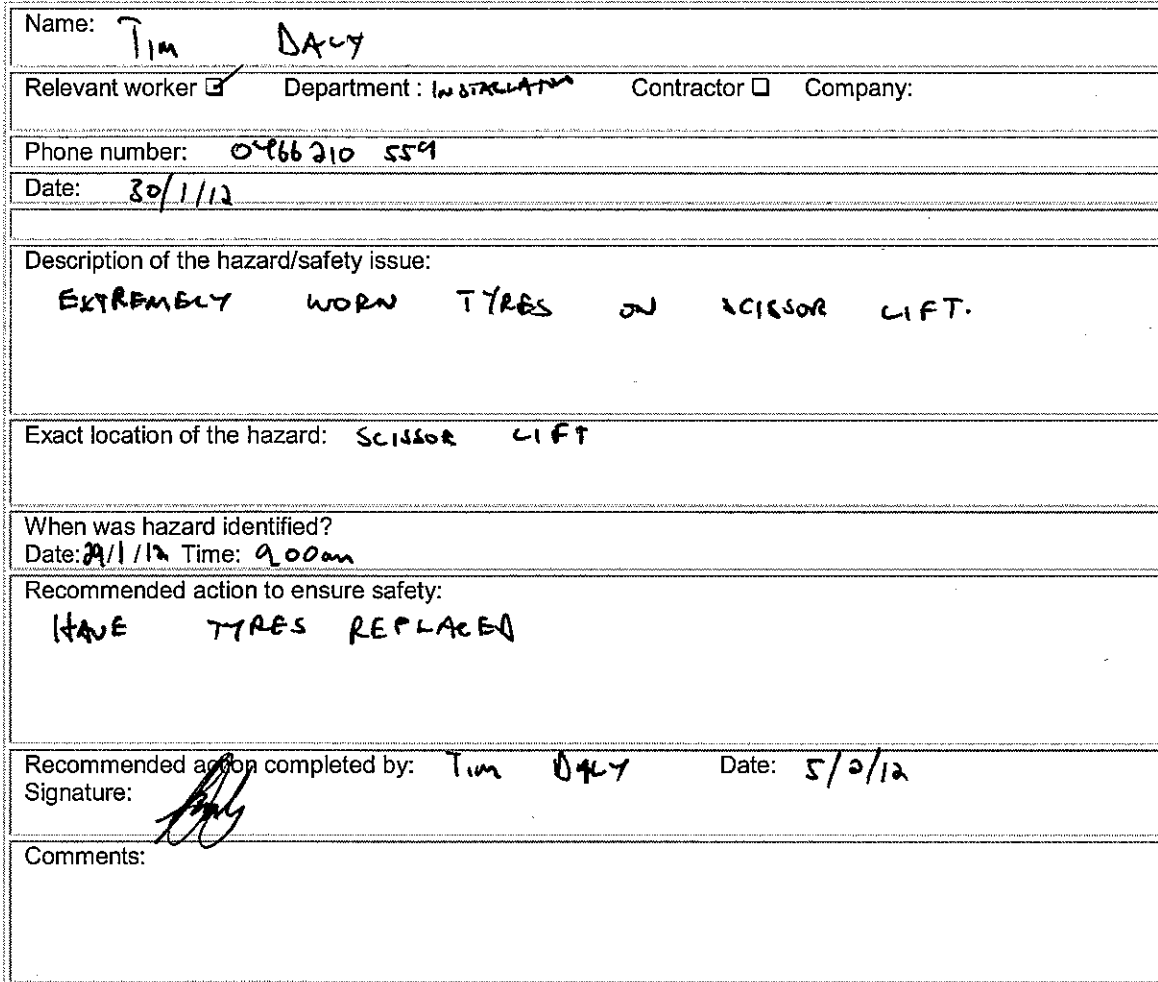 Name: TIM DALY
Relevant worker ☑ Department : INSTALLATION Contractor ❑ Company:
Phone number: 0466 210 559
Date: 30/1/12
Description of the hazard/safety issue:
EXTREMELY WORN TYRES ON SCISSOR LIFT.
Exact location of the hazard: SCISSOR LIFT
When was hazard identified?
Date: 29/1/12 Time: 9.00am
Recommended action to ensure safety:
HAVE TYRES REPLACED
Recommended action completed by: Tim DALY Date: 5/2/12
Signature:
Comments: